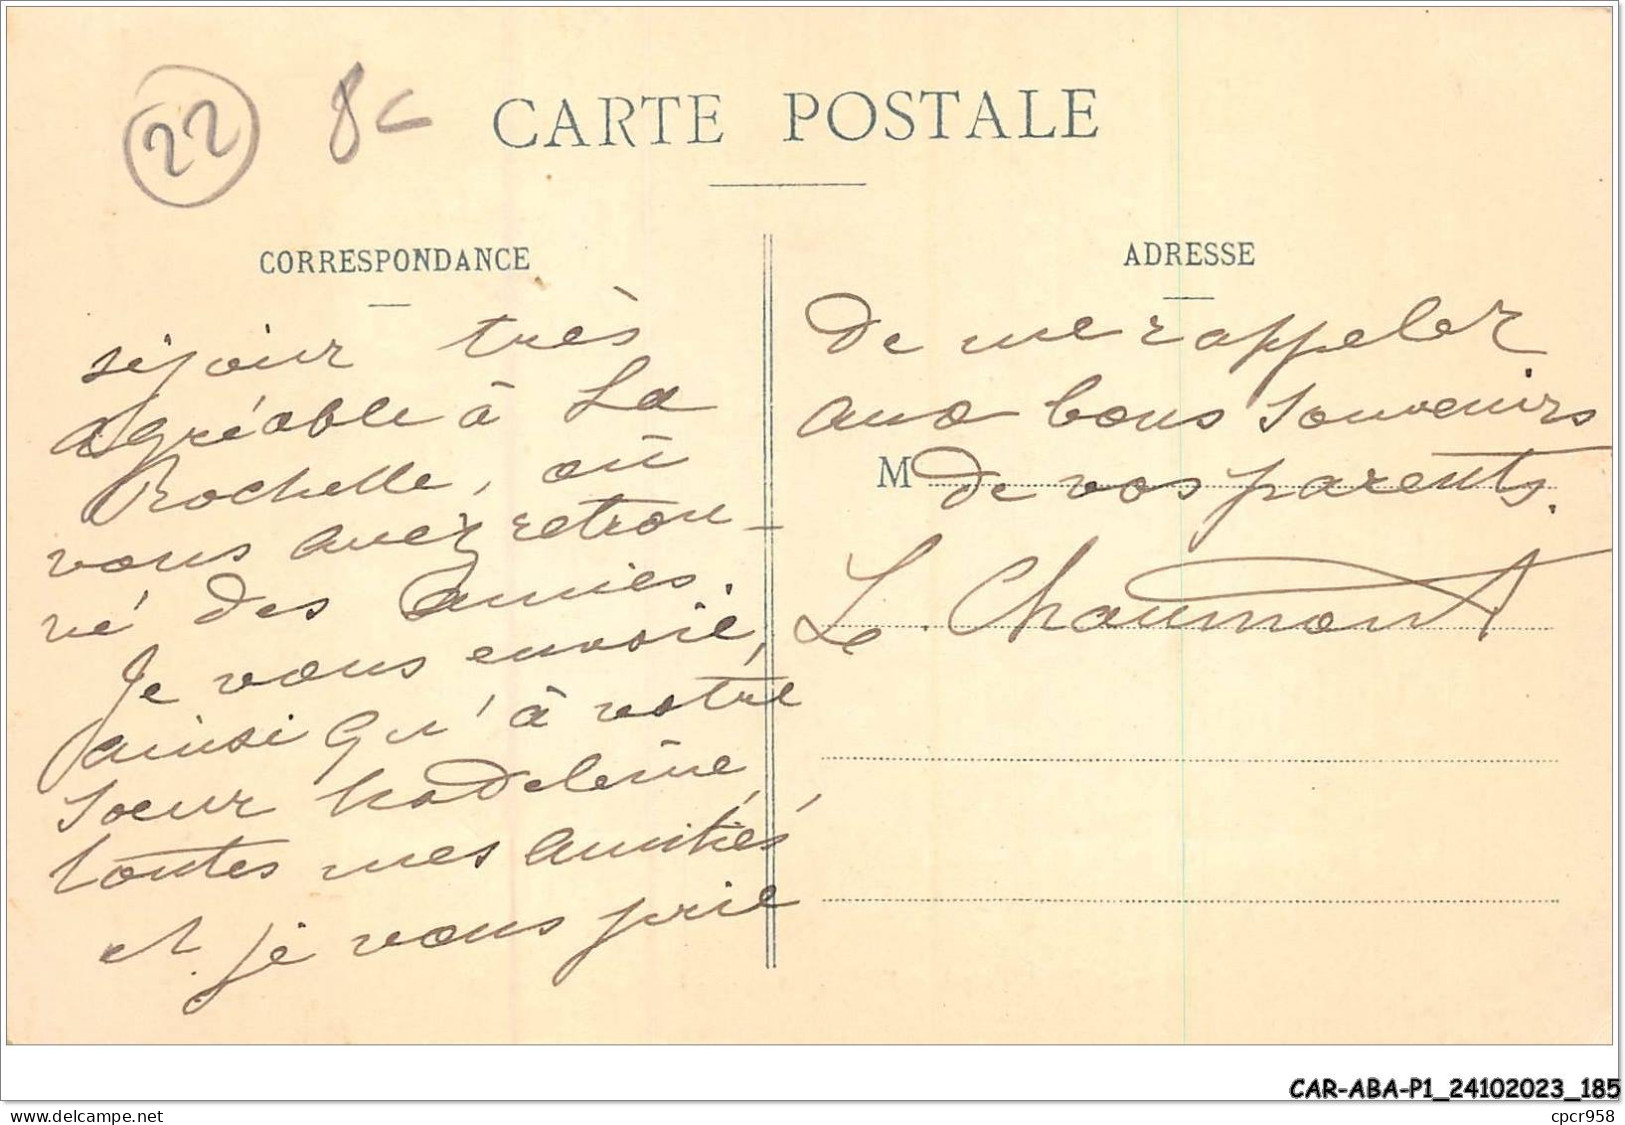 22 8c
CARTE POSTALE
CORRESPONDANCE
séjour très
agréable à La
Rochelle, où
vous avez retrou-
vé des amies.
Je vous envoie,
ainsi qu'à votre
soeur Madeleine,
toutes mes amitiés,
et je vous prie
ADRESSE
de me rappeler
aux bons souvenirs
M
de vos parents.
Le Chaumont
CAR-ABA-P1_24102023_185
www.delcampe.net
cpcr958